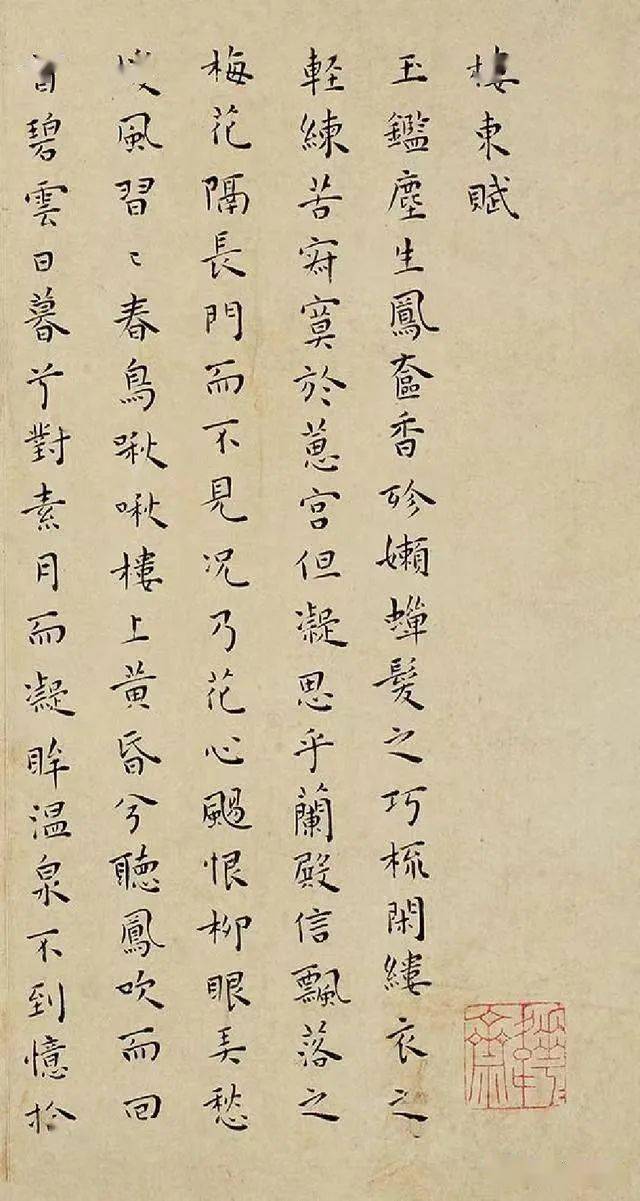 樓東賦
玉鑑塵生鳳奩香殄嬾蟬髮之巧梳閑縷衣之
軽練苦寂寞於蕙宮但凝思乎蘭殿信飄落之
梅花隔長門而不見况乃花心颺恨柳眼弄愁
風習〻春鳥啾啾樓上黃昏兮聽鳳吹而回
首碧雲日暮兮對素月而凝眸温泉不到憶拾